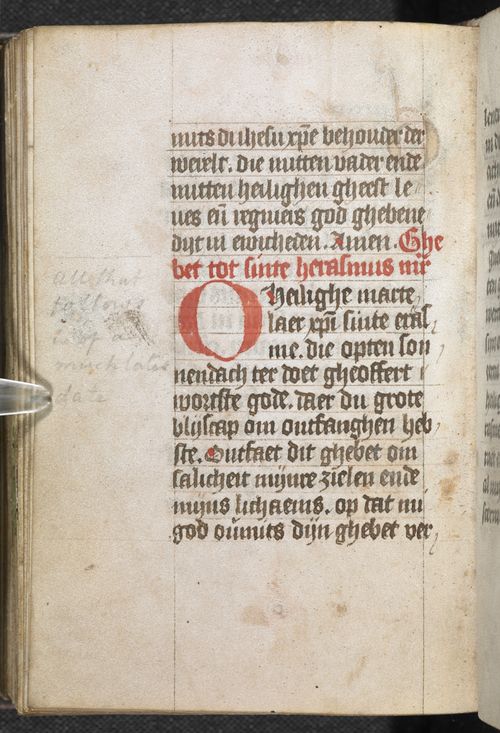 mits di ihesu xpe behouder der
werelt. die mitten vader ende
mitten heilighen gheest le
ues en regniers god ghebene
dijt in ewicheden. Amen. Ghe
bet tot sinte herasmus mr
O Heilighe marte
laer xpi sinte eras
me. die opten son
nendach ter doet gheoffert
wortste gode. daer du grote
blijscap om ontfanghen heb
ste. Ontfaet dit ghebet om
salicheit mijnre zielen ende
mijns lichaems. op dat mi
god ouermits dijn ghebet ver
all that
follows
is of a
much later
date